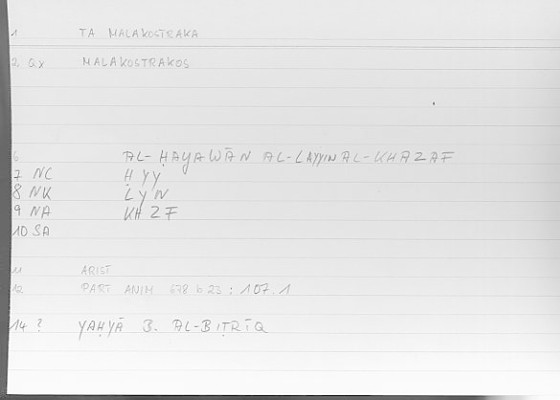 1 TA MALAKOSTRAKA
2 Qx MALAKOSTRAKOS
6 AL-ḤAYAWĀN AL-LAYYIN AL-KHAZAF
7 NC ḤYY
8 NK LYN
9 NA KHZF
10 SA
11 ARIST
12 PART ANIM 678 b 23 : 107.1
14 ? YAḤYĀ B. AL-BIṬRĪQ